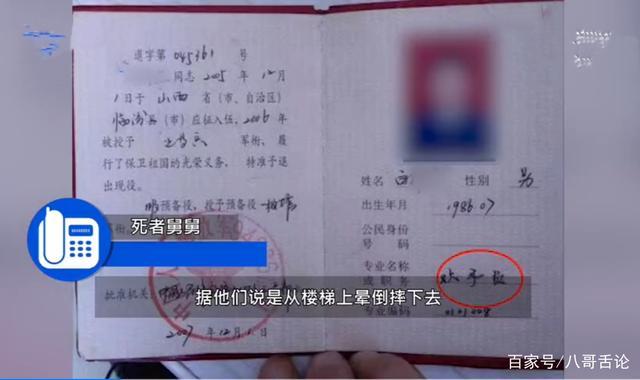 退字第045361号
同志2005年12月
1日于山西省(市、自治区)
临汾县(市)应征入伍,2006年
被授予上等兵军衔、履
行了保卫祖国的光荣义务、特准予退
出现役。
服预备役,授予预备役
批准机关:
2007年12月1日
姓名 白 性别 男
出生年月 198607
公民身份
号码
专业名称
或职务
专业编码
死者舅舅
据他们说是从楼梯上晕倒摔下去
百家号/八哥舌论